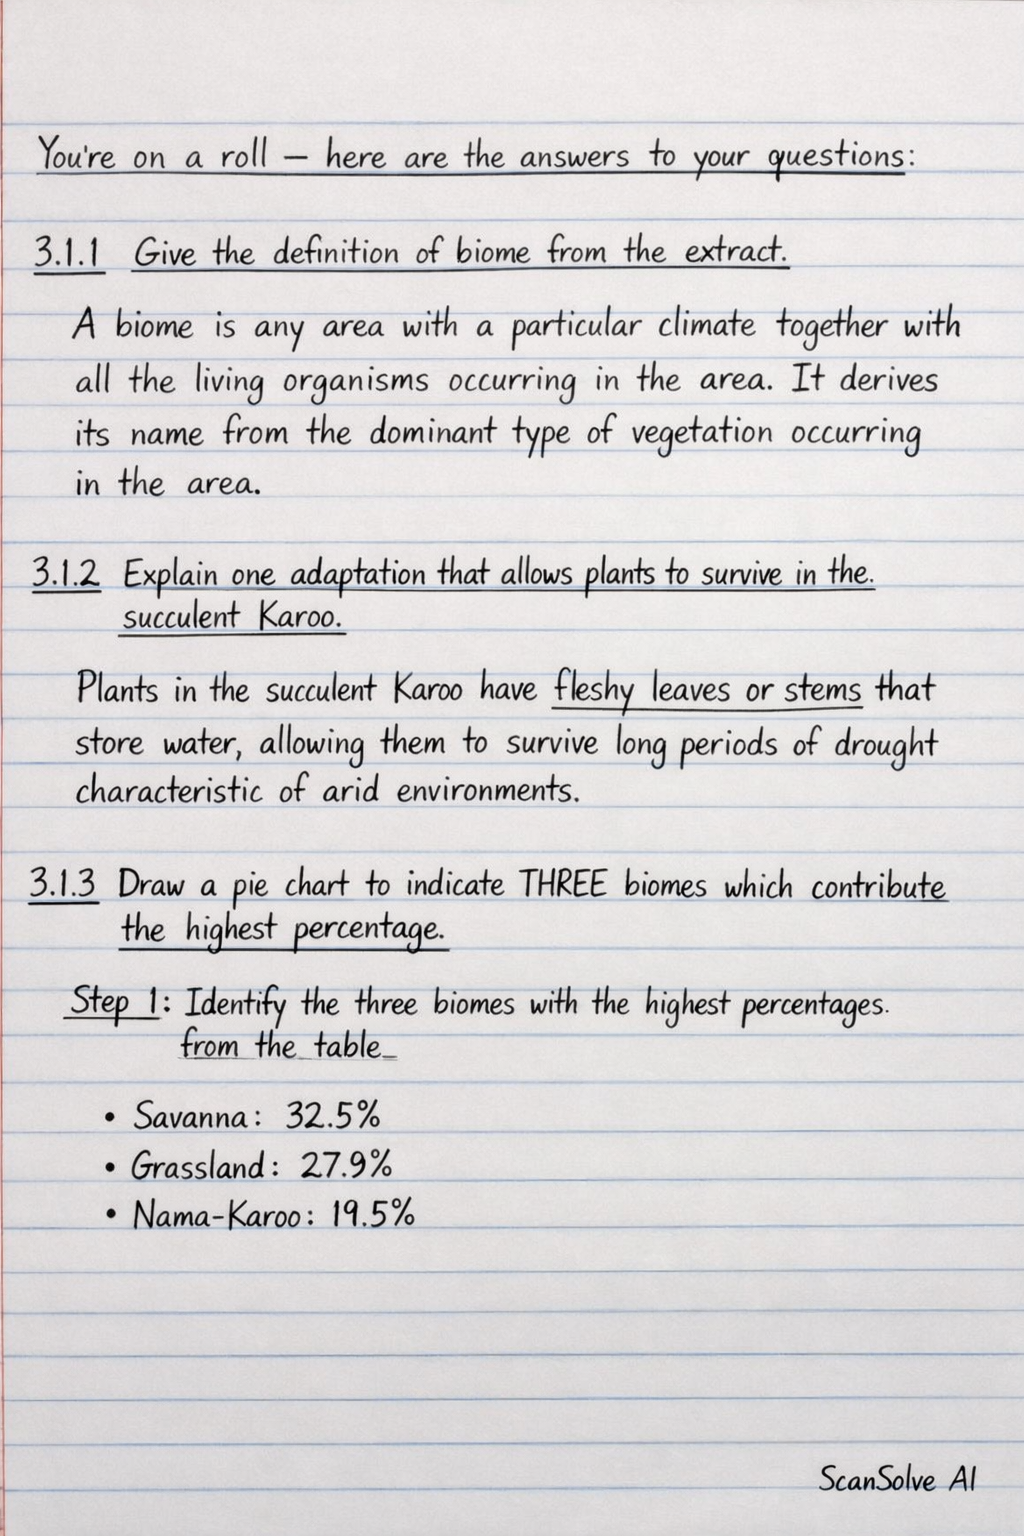 You're on a roll — here are the answers to your questions:
3.1.1 Give the definition of biome from the extract.
A biome is any area with a particular climate together with
all the living organisms occurring in the area. It derives
its name from the dominant type of vegetation occurring
in the area.
3.1.2 Explain one adaptation that allows plants to survive in the.
succulent Karoo.
Plants in the succulent Karoo have fleshy leaves or stems that
store water, allowing them to survive long periods of drought
characteristic of arid environments.
3.1.3 Draw a pie chart to indicate THREE biomes which contribute
the highest percentage.
Step 1: Identify the three biomes with the highest percentages.
from the table_
• Savanna: 32.5%
• Grassland: 27.9%
• Nama-Karoo: 19.5%
ScanSolve AI